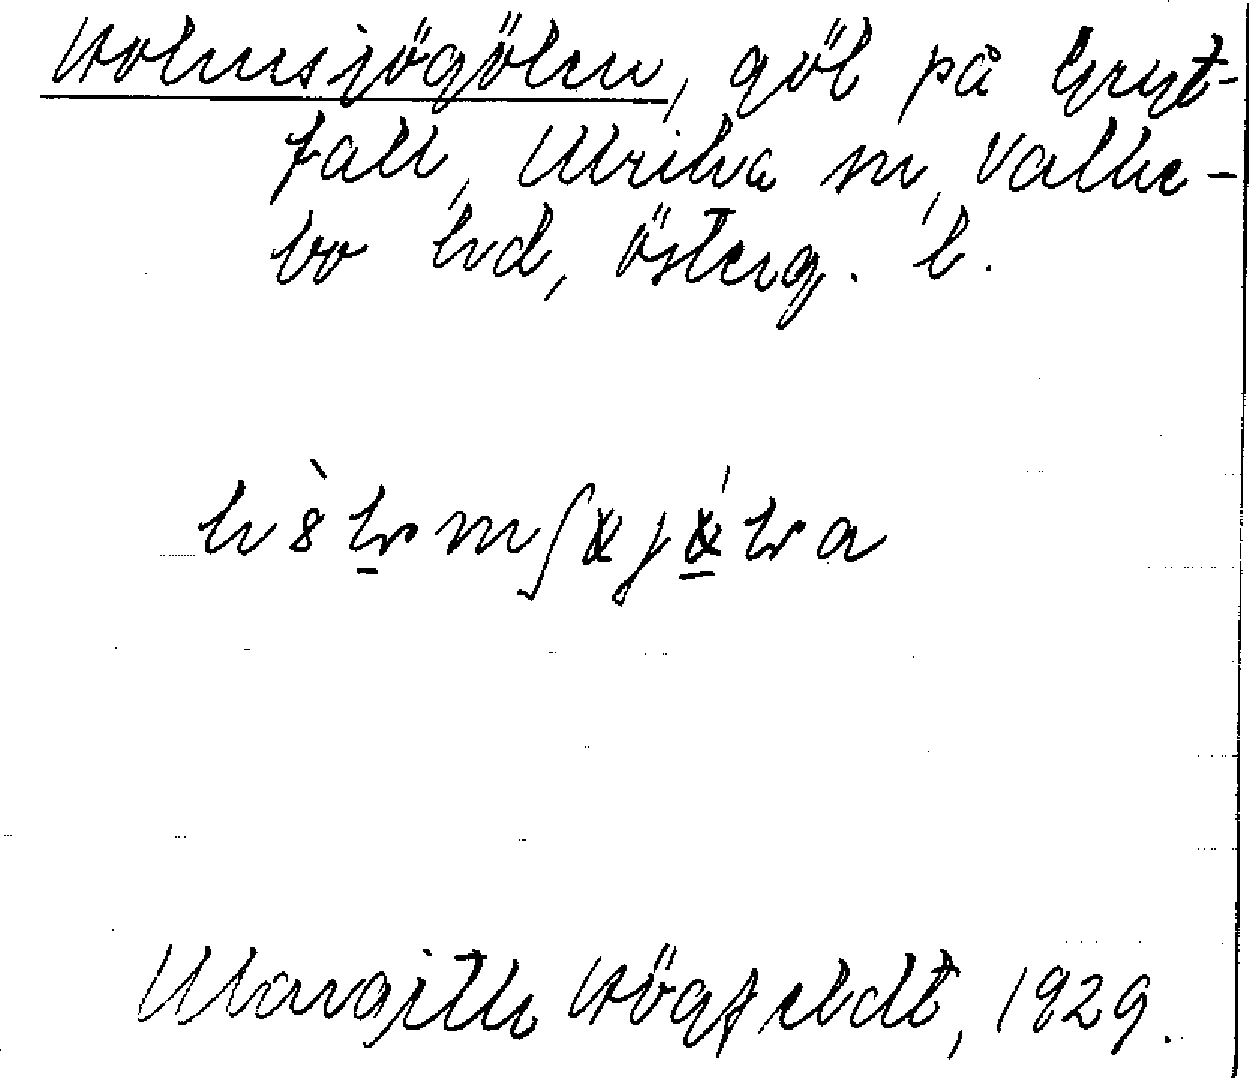 Holmsjögölen, göl på Gryt-
fall, Ulrika sn, Valke-
bo hd, Österg. l.
Margith Högfeldt, 1929.